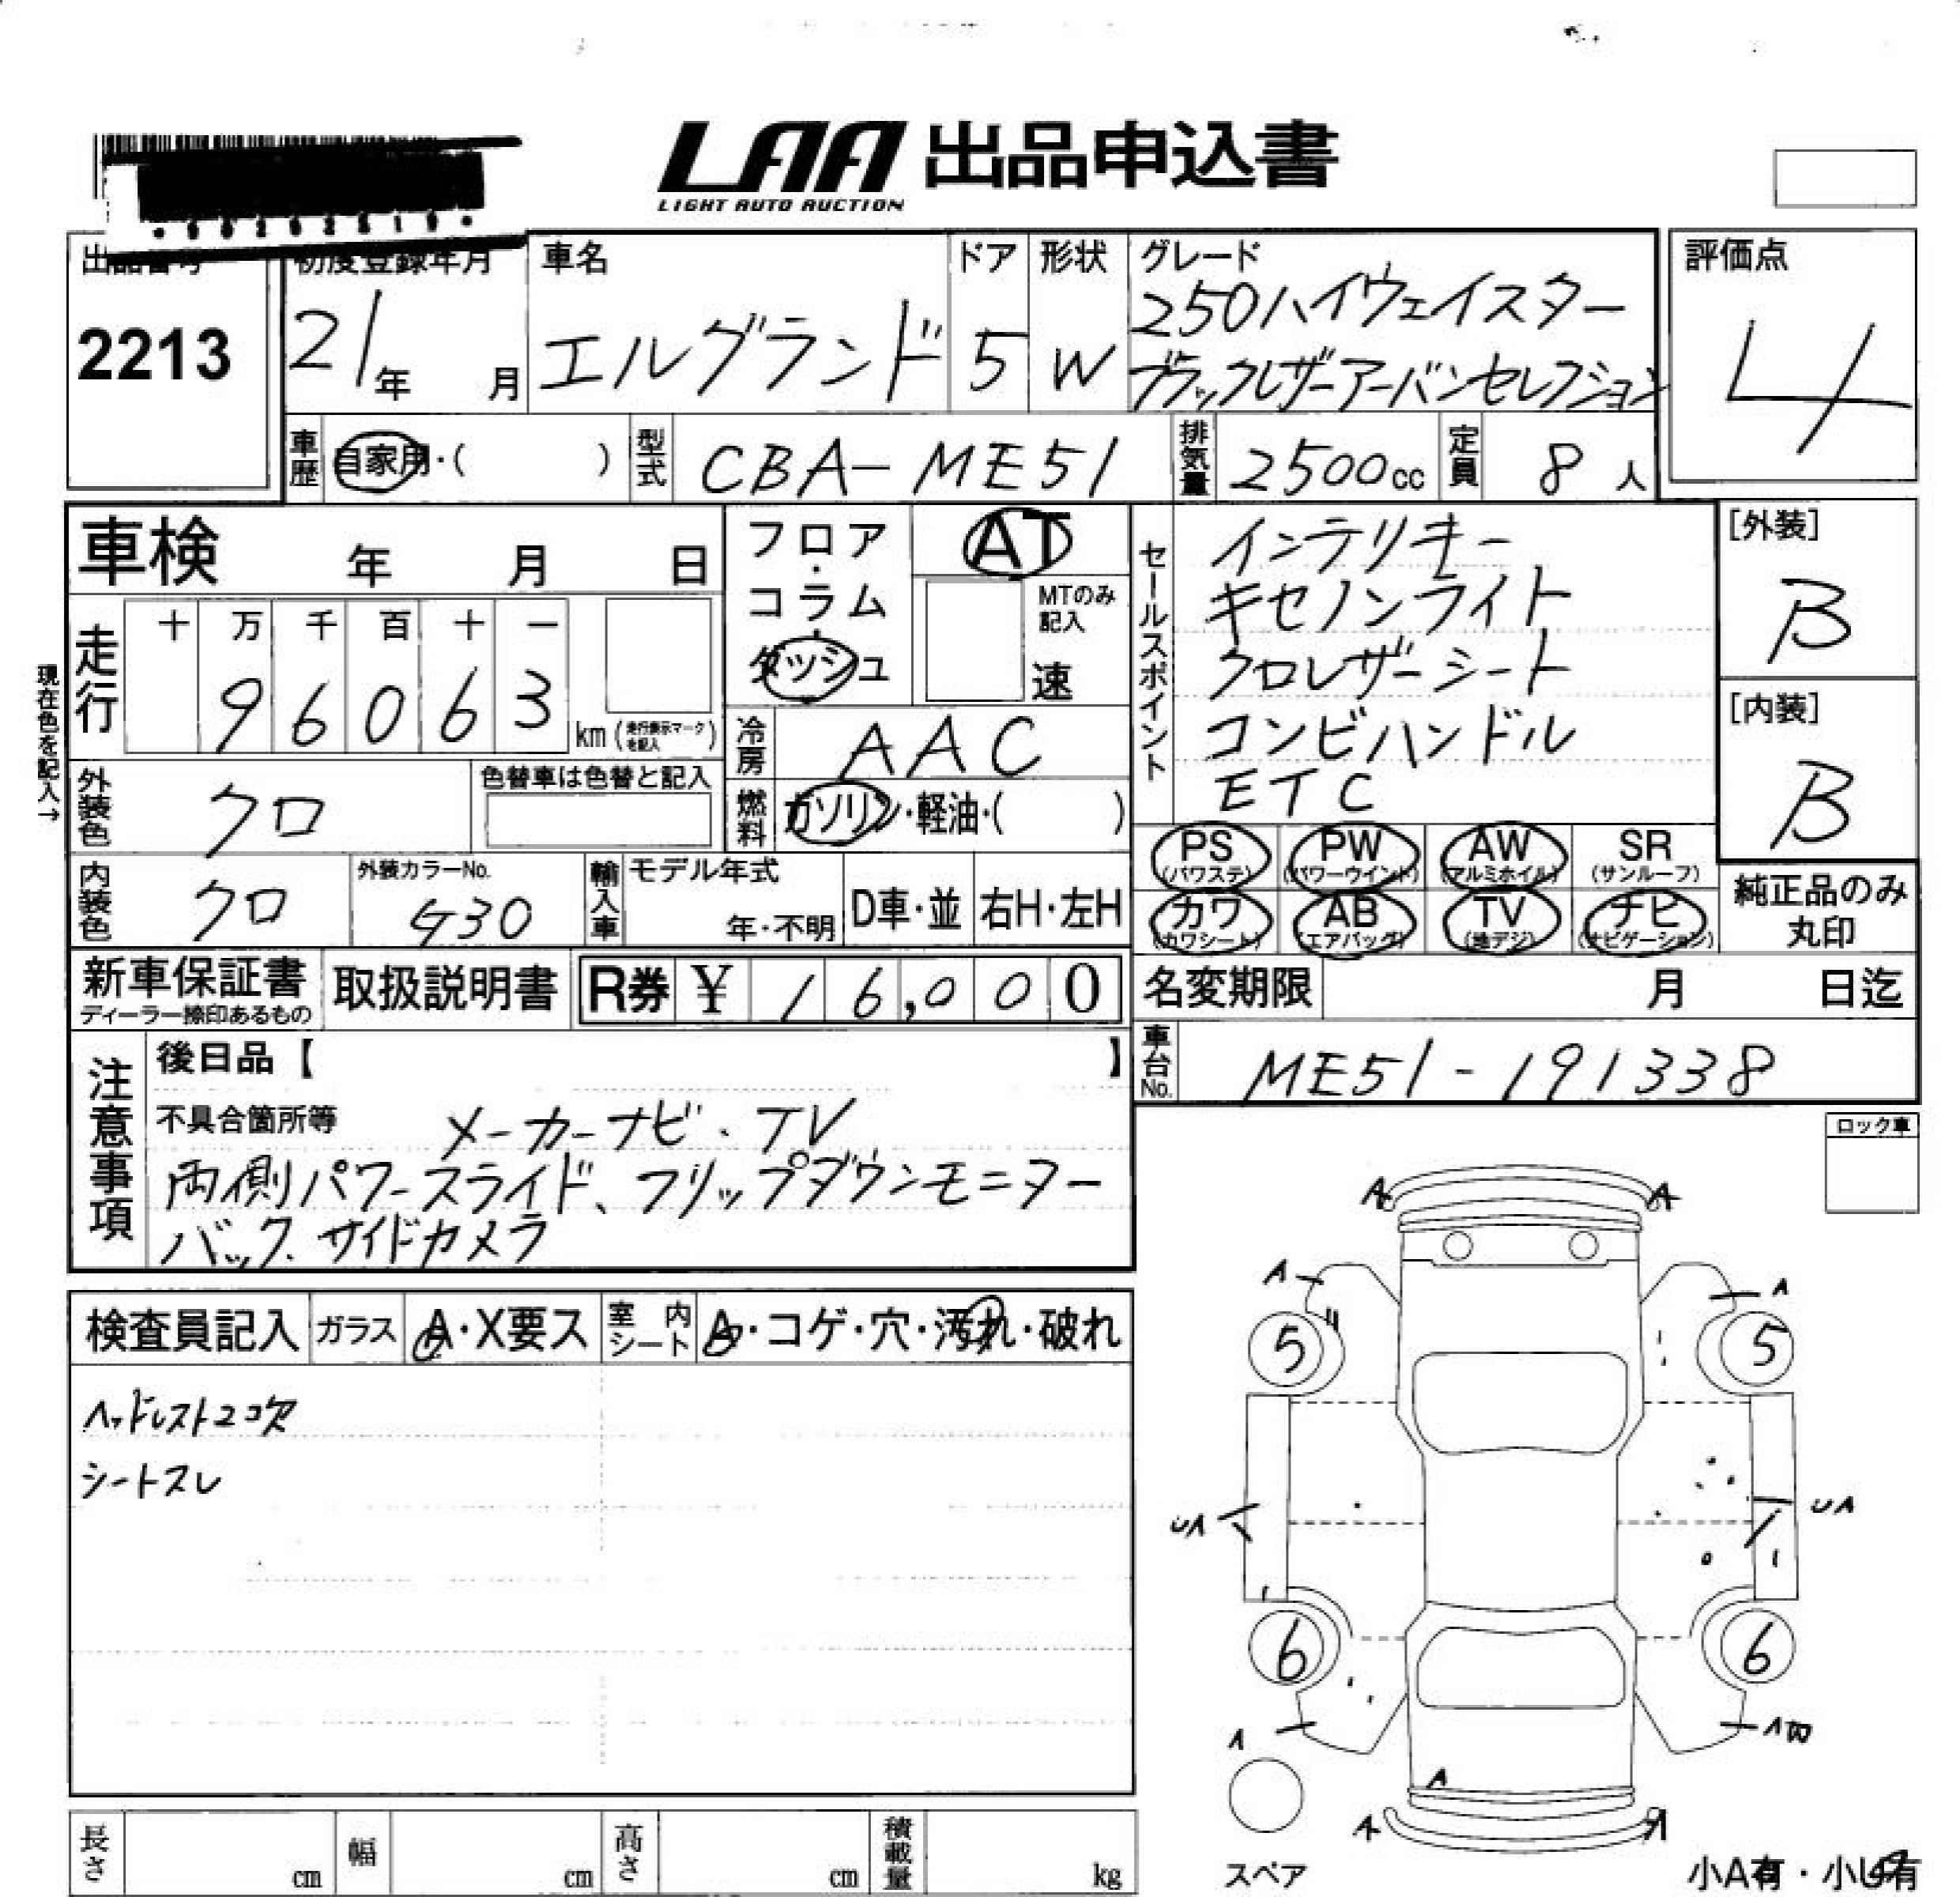 LAA 出品申込書
LIGHT AUTO AUCTION
出品番号
2213
初度登録年月
21年 月
車名
エルグランド
ドア
5
形状
W
グレード
250ハイウェイスター
ブラックレザーアーバンセレクション
評価点
4
車歴 自家用・( )
型式 CBA-ME51
排気量 2500cc
定員 8人
車検 年 月 日
フロア・コラム・ダッシュ
AT
MTのみ記入
速
走行
十 万 千 百 十 一
9 6 0 6 3 km(走行表示マークを記入)
現在色を記入→
冷房 AAC
燃料 ガソリン・軽油・( )
外装色 クロ
色替車は色替と記入
内装色 クロ
外装カラーNo.
G30
輸入車
モデル年式
年・不明
D車・並
右H・左H
セールスポイント
インテリキー
キセノンライト
クロレザーシート
コンビハンドル
ETC
[外装]
B
[内装]
B
PS(パワステ) PW(パワーウインド) AW(アルミホイル) SR(サンルーフ)
カワ(カワシート) AB(エアバッグ) TV(地デジ) ナビ(ナビゲーション)
純正品のみ
丸印
新車保証書
ディーラー捺印あるもの
取扱説明書
R券 ¥ 16,000
名変期限 月 日迄
車台No. ME51-191338
注意事項
後日品【 】
不具合箇所等 メーカーナビ、TV
両側パワースライド、フリップダウンモニター
バック、サイドカメラ
ロック車
検査員記入 ガラス A・X要ス 室内シート A・コゲ・穴・汚れ・破れ
ヘッドレスト2コ欠
シートスレ
A A
A A
5 5
UA UA
6 6
A AW
A
A A
スペア
小A有・小U有
長さ cm 幅 cm 高さ cm 積載量 kg